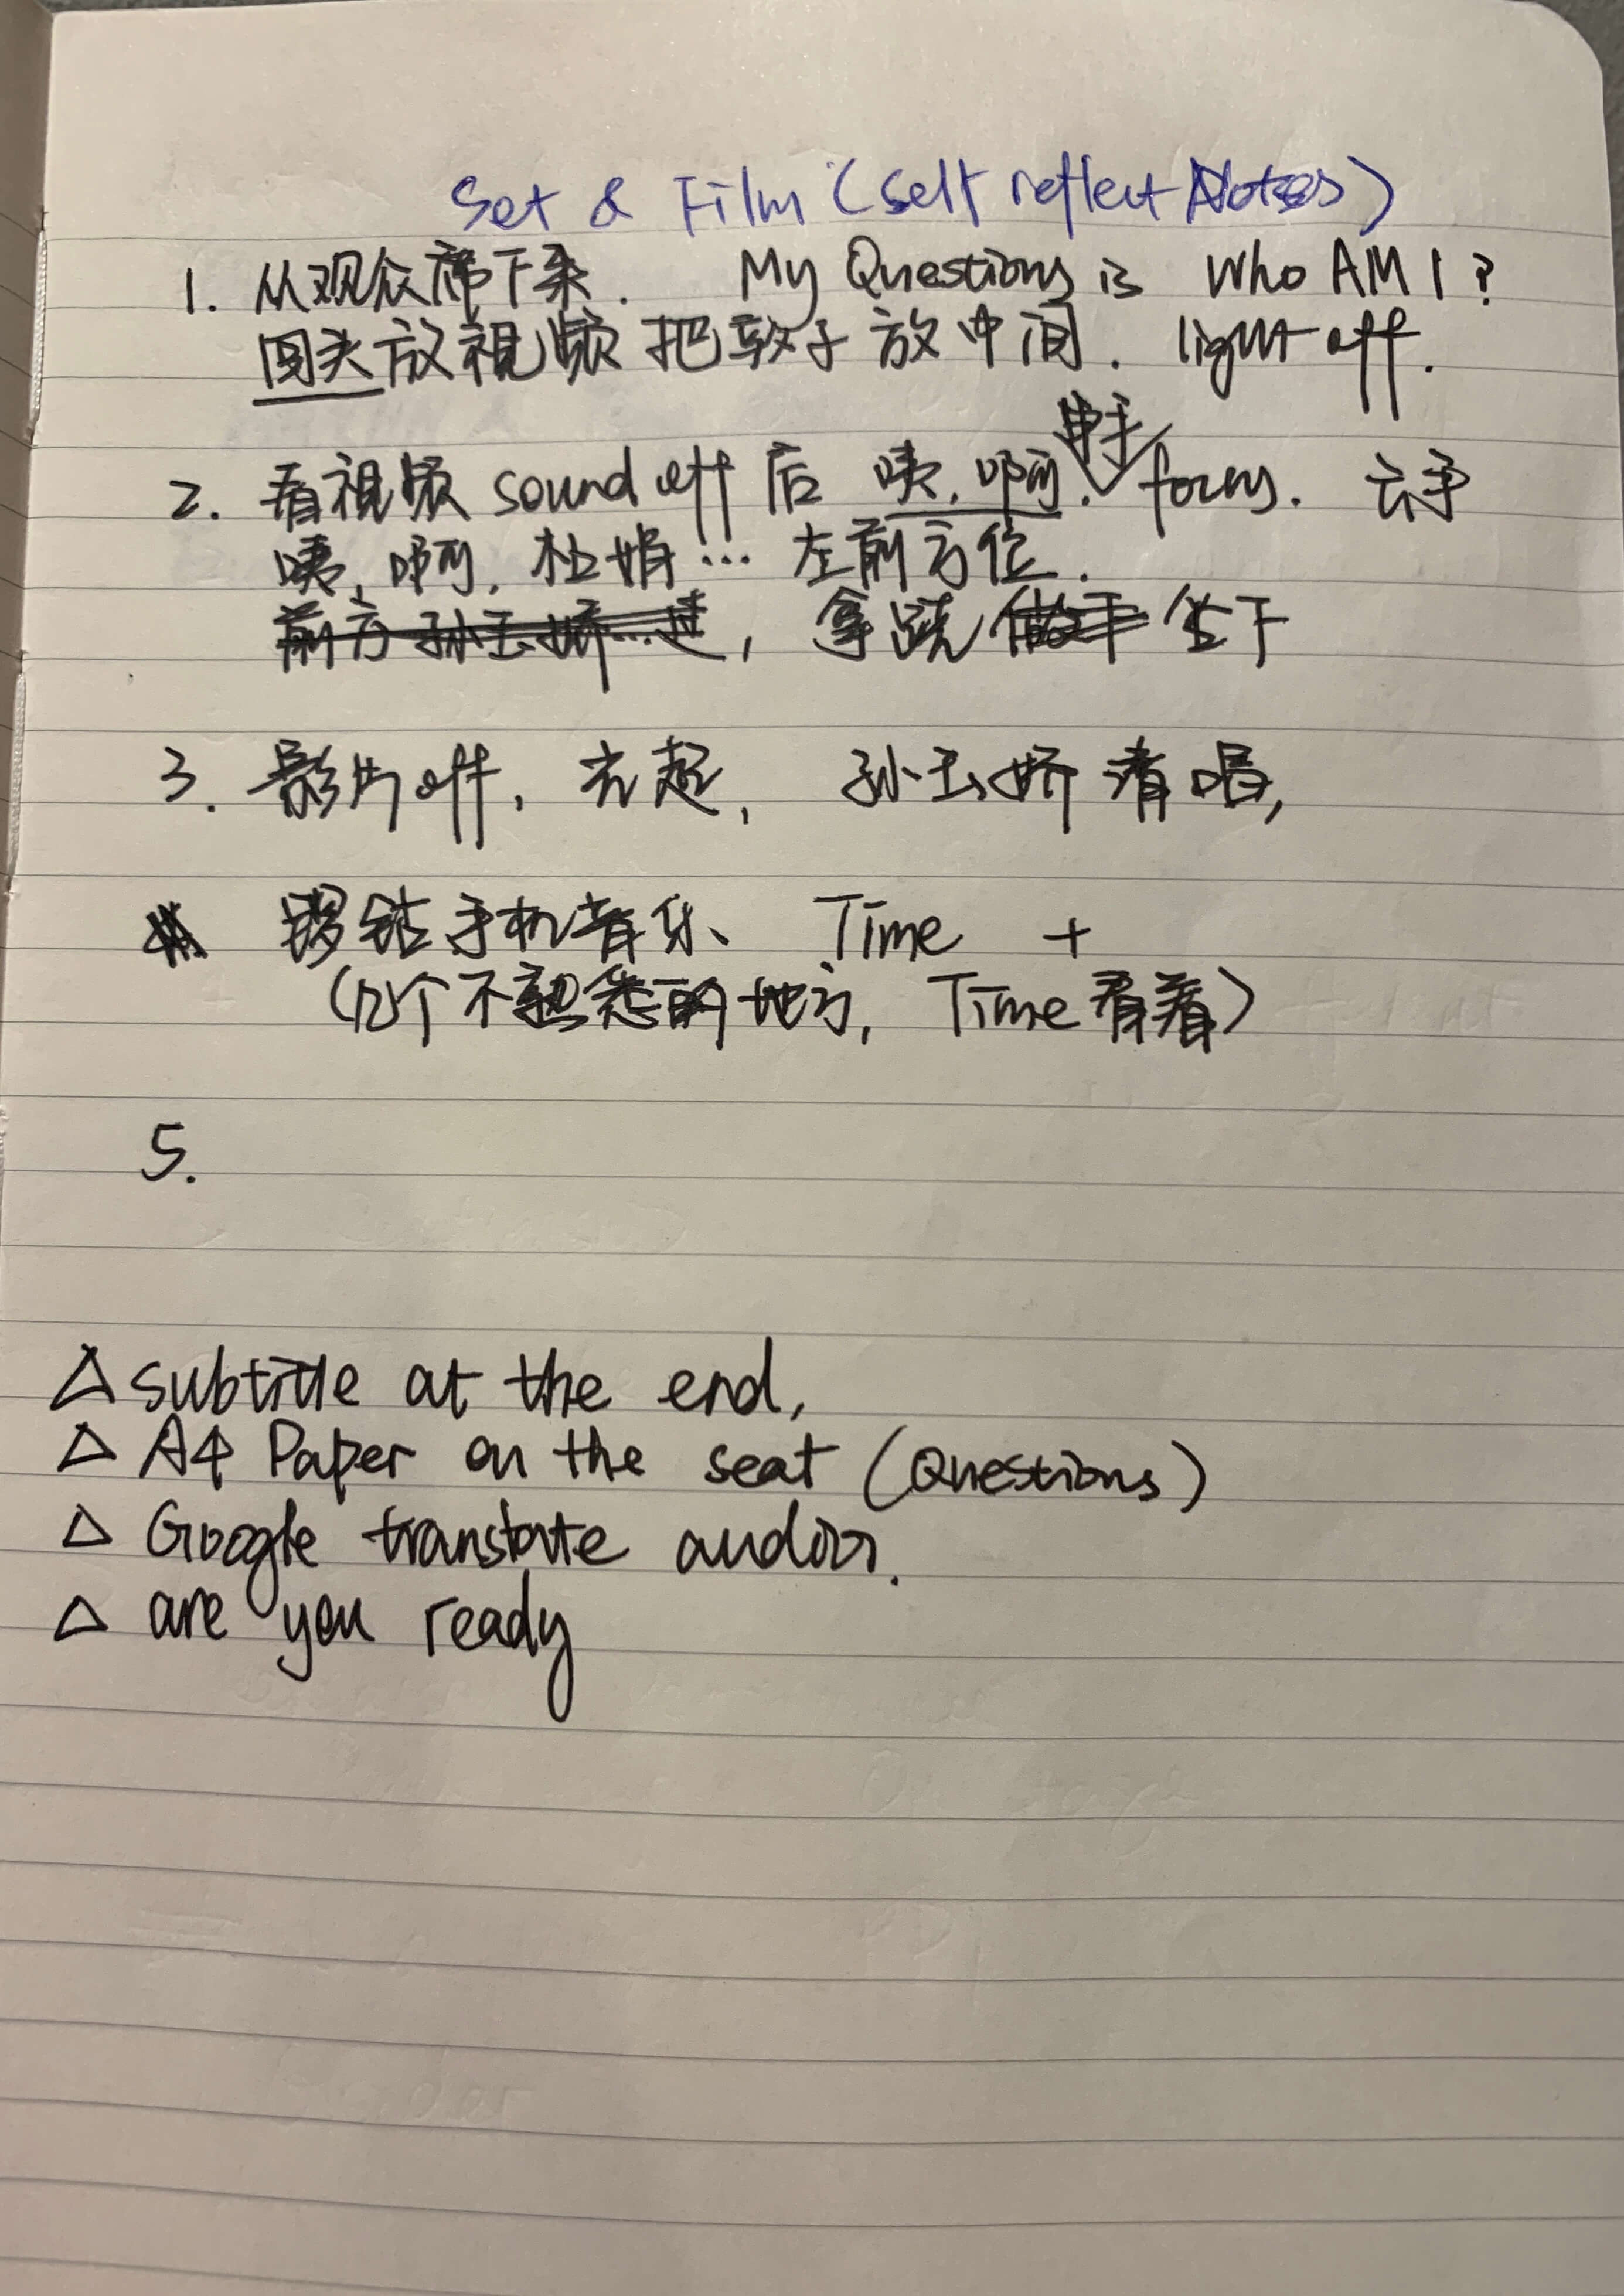 Set & Film (self reflect Notes)
1. 从观众席下来. My Questions is Who AM I?
回头放视频 把凳子放中间. light off.
2. 看视频 sound off 后 咦,啊. focus. 云手
咦,啊,杜娟… 左前方位.
前方孙玉娇…走, 拿跷 坐下
3. 影片off, 光起, 孙玉娇清唱,
锣钹手机音乐、 Time +
(几个不熟悉的地方, Time看着)
5.
△ subtitle at the end,
△ A4 Paper on the seat (Questions)
△ Google translate audios.
△ are you ready